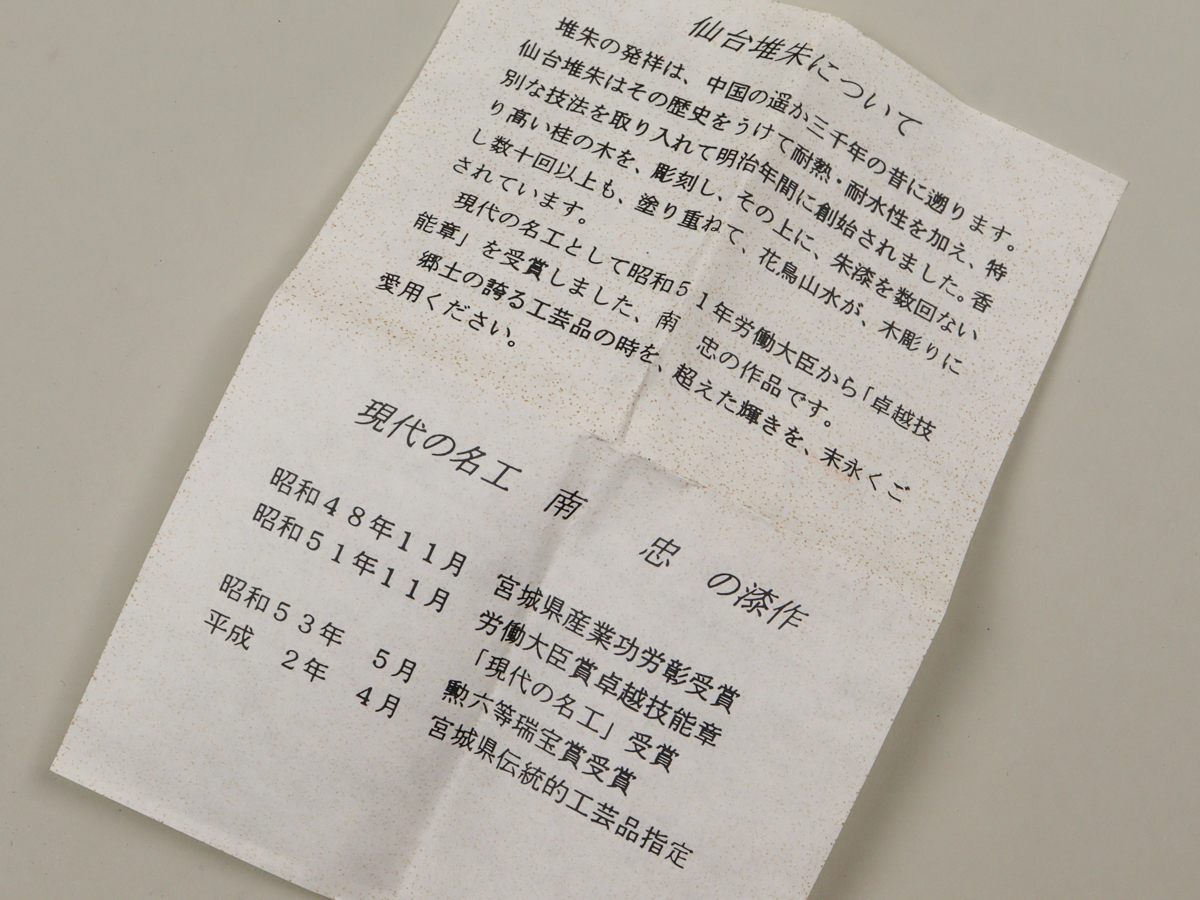 仙台堆朱について
堆朱の発祥は、中国の遥か三千年の昔に遡ります。
仙台堆朱はその歴史をうけて耐熱・耐水性を加え、特
別な技法を取り入れて明治年間に創始されました。香
り高い桂の木を、彫刻し、その上に、朱漆を数回ない
し数十回以上も、塗り重ねて、花鳥山水が、木彫りに
されています。
現代の名工として昭和51年労働大臣から「卓越技
能章」を受賞しました、南　忠の作品です。
郷土の誇る工芸品の時を、超えた輝きを、末永くご
愛用ください。
現代の名工　南　　忠　の漆作
昭和48年11月　宮城県産業功労彰受賞
昭和51年11月　労働大臣賞卓越技能章
「現代の名工」受賞
昭和53年　5月　勲六等瑞宝賞受賞
平成　2年　4月　宮城県伝統的工芸品指定